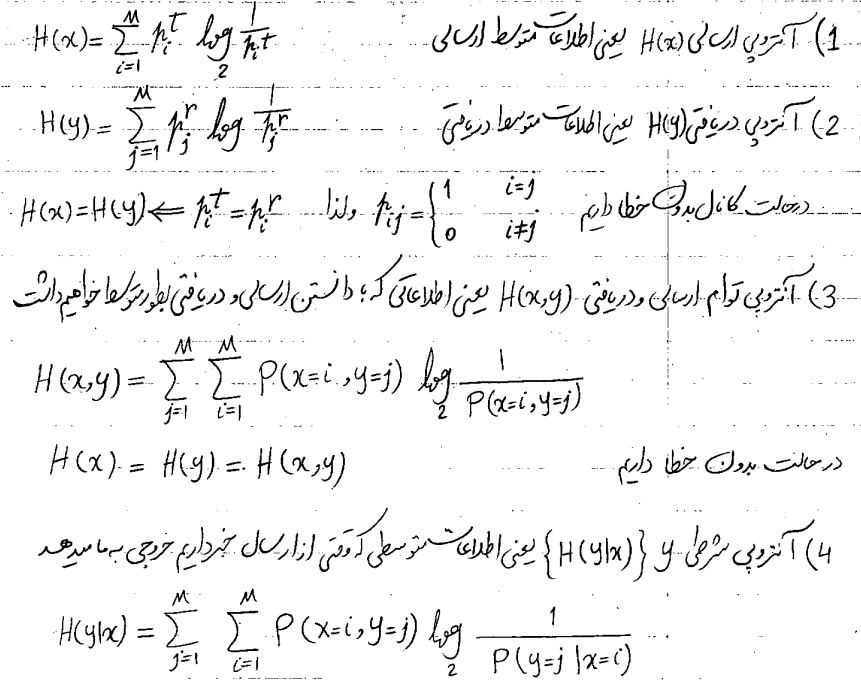 1) آنتروپی ارسالی H(x) یعنی اطلاعات متوسط ارسالی H(x) = \sum_{i=1}^{M} p_i^t \log_2 \frac{1}{p_i^t}
2) آنتروپی دریافتی H(y) یعنی اطلاعات متوسط دریافتی H(y) = \sum_{j=1}^{M} p_j^r \log \frac{1}{p_j^r}
در حالت کانال بدون خطا داریم p_{ij} = \begin{cases} 1 & i=j \\ 0 & i \neq j \end{cases} ولذا p_i^t = p_i^r ⇒ H(x)=H(y)
3) آنتروپی توام ارسالی و دریافتی H(x,y) یعنی اطلاعاتی که با دانستن ارسالی و دریافتی بطور متوسط خواهیم داشت
H(x,y) = \sum_{j=1}^{M} \sum_{i=1}^{M} P(x=i, y=j) \log_2 \frac{1}{P(x=i, y=j)}
در حالت بدون خطا داریم H(x) = H(y) = H(x,y)
4) آنتروپی شرطی y {H(y|x)} یعنی اطلاعات متوسطی که وقتی از ارسال خبر داریم خروجی به ما میدهد
H(y|x) = \sum_{j=1}^{M} \sum_{i=1}^{M} P(x=i, y=j) \log_2 \frac{1}{P(y=j | x=i)}